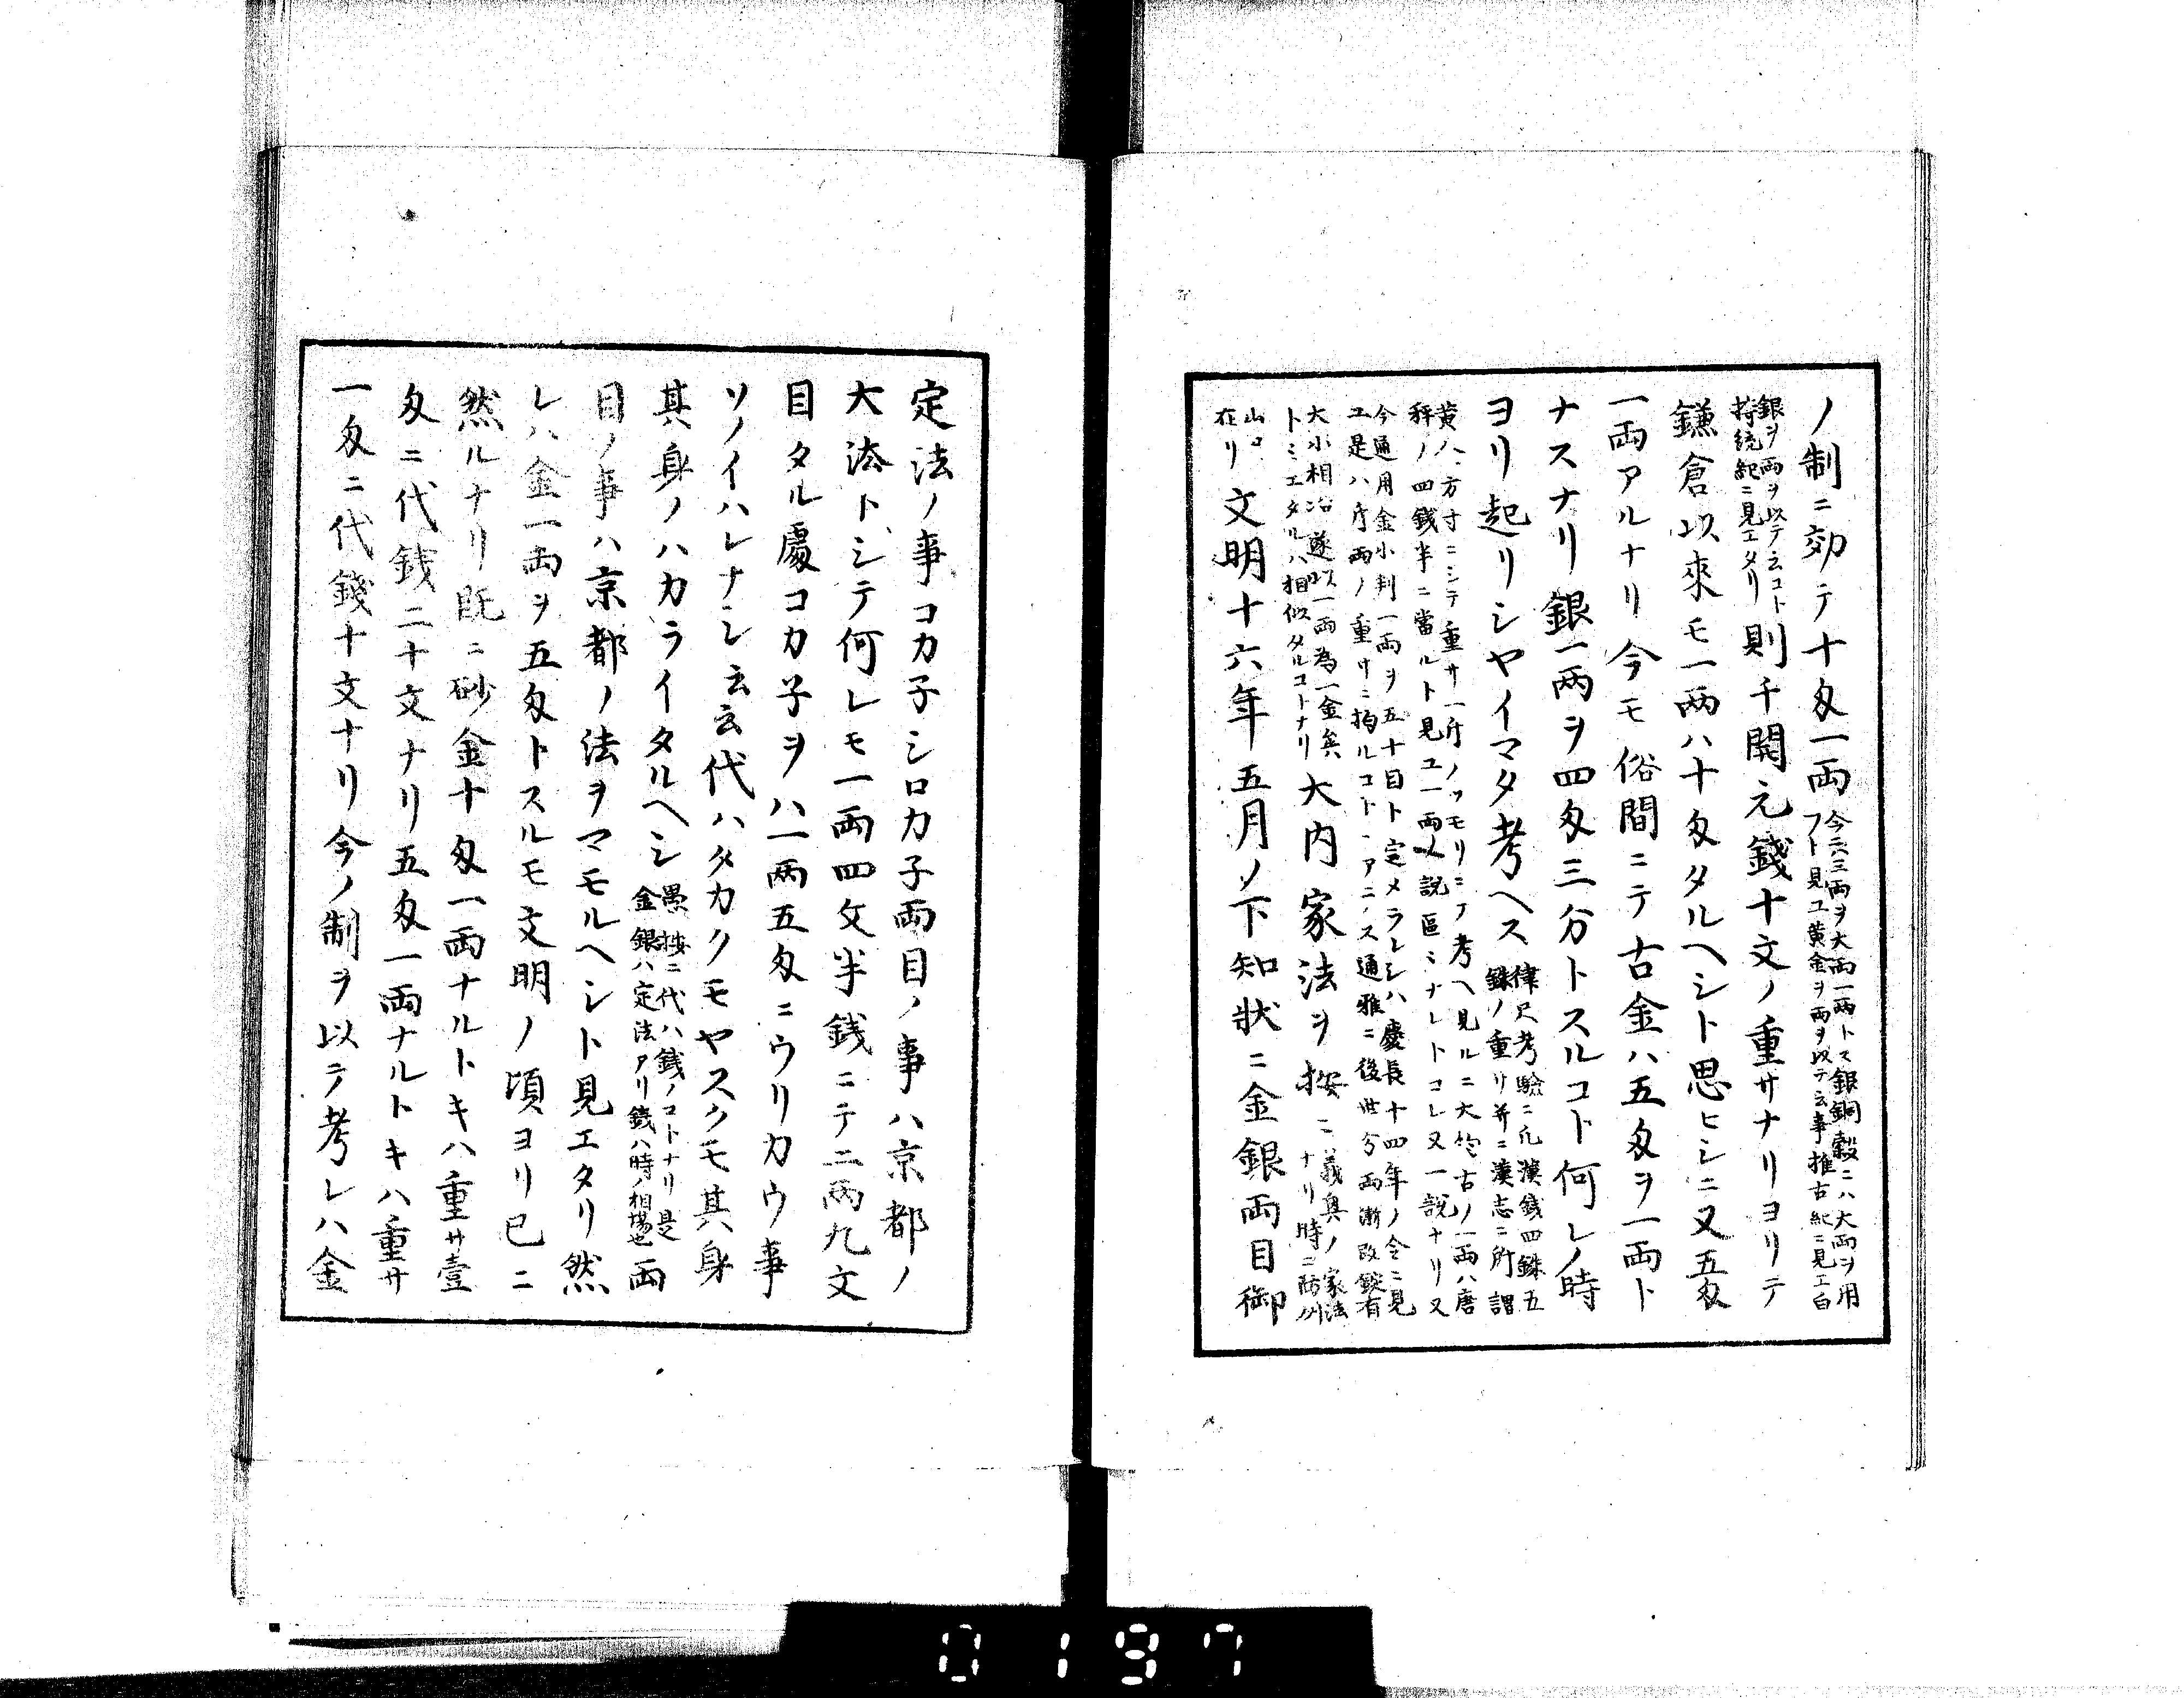 ノ制ニ効テ十匁一両今云三両ヲ大両一両トス銀銅穀ニハ大両ヲ用
フト見ユ黄金ヲ両ヲ以テ云事推古紀ニ見エ白
銀ヲ両ヲ以テ云コト
持統紀ニ見エタリ則千開元錢十文ノ重サナリヨリテ
鎌倉以來モ一両ハ十匁タルヘシト思ヒシニ又五匁
一両アルナリ今モ俗間ニテ古金ハ五匁ヲ一両ト
ナスナリ銀一両ヲ四匁三分トスルコト何レノ時
ヨリ起リシヤイマタ考ヘス律尺考驗ニ凡漢銭四銖五
銖ノ重リ并ニ漢志ニ所謂
黄ノハ方寸ニシテ重サ一斤ノツモリニテ考ヘ見ルニ大抵古ノ一両ハ唐
秤ノ四銭半ニ當ルト見ユ一両ノ説區々ナレトコレ又一説ナリ又
今通用金小判一両ヲ五十目ト定メラレシハ慶長十四年ノ令ニ見
ユ是ハ斤両ノ重サニ拘ルコトニアラス通雅ニ後世分両漸改錠有
大小相沿遂以一両為一金矣
トミエタルハ相似タルコトナリ大内家法ヲ按ニ義興ノ家法
ナリ時ニ防州
山口
在リ文明十六年五月ノ下知状ニ金銀両目御
定法ノ事コカ子シロカ子両目ノ事ハ京都ノ
大法トシテ何レモ一両四文半銭ニテ二両九文
目タル處コカ子ヲハ一両五匁ニウリカウ事
ソノイハレナシ云云代ハタカクモヤスクモ其身
其身ノハカライタルヘシ愚按ニ代ハ銭ノコトナリ是
金銀ハ定法アリ錢ハ時ノ相場也両
目ノ事ハ京都ノ法ヲマモルヘシト見エタリ然
レハ金一両ヲ五匁トスルモ文明ノ頃ヨリ已ニ
然ルナリ既ニ砂金十匁一両ナルトキハ重サ壹
匁ニ代銭二十文ナリ五匁一両ナルトキハ重サ
一匁ニ代錢十文ナリ今ノ制ヲ以テ考レハ金
0197